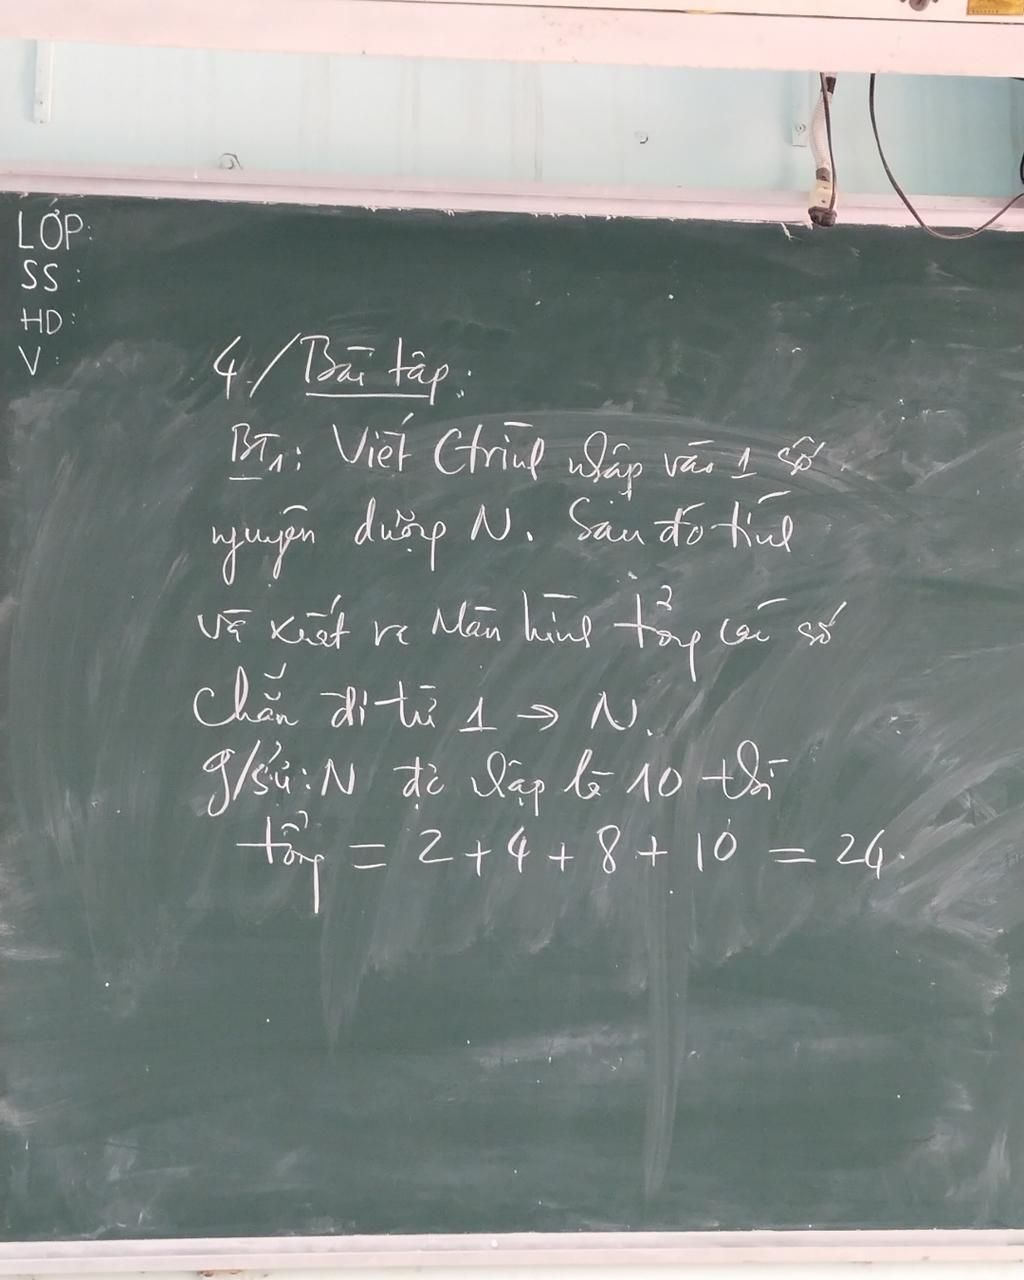 LỚP:
SS:
HD:
V:
4/ Bài tập:
BT1: Viết Ctrình nhập vào 1 số
nguyên dương N. Sau đó tính
và xuất ra Màn hình tổng các số
chẵn đi từ 1 → N.
g/sử: N đc nhập là 10 thì
tổng = 2 + 4 + 8 + 10 = 24.